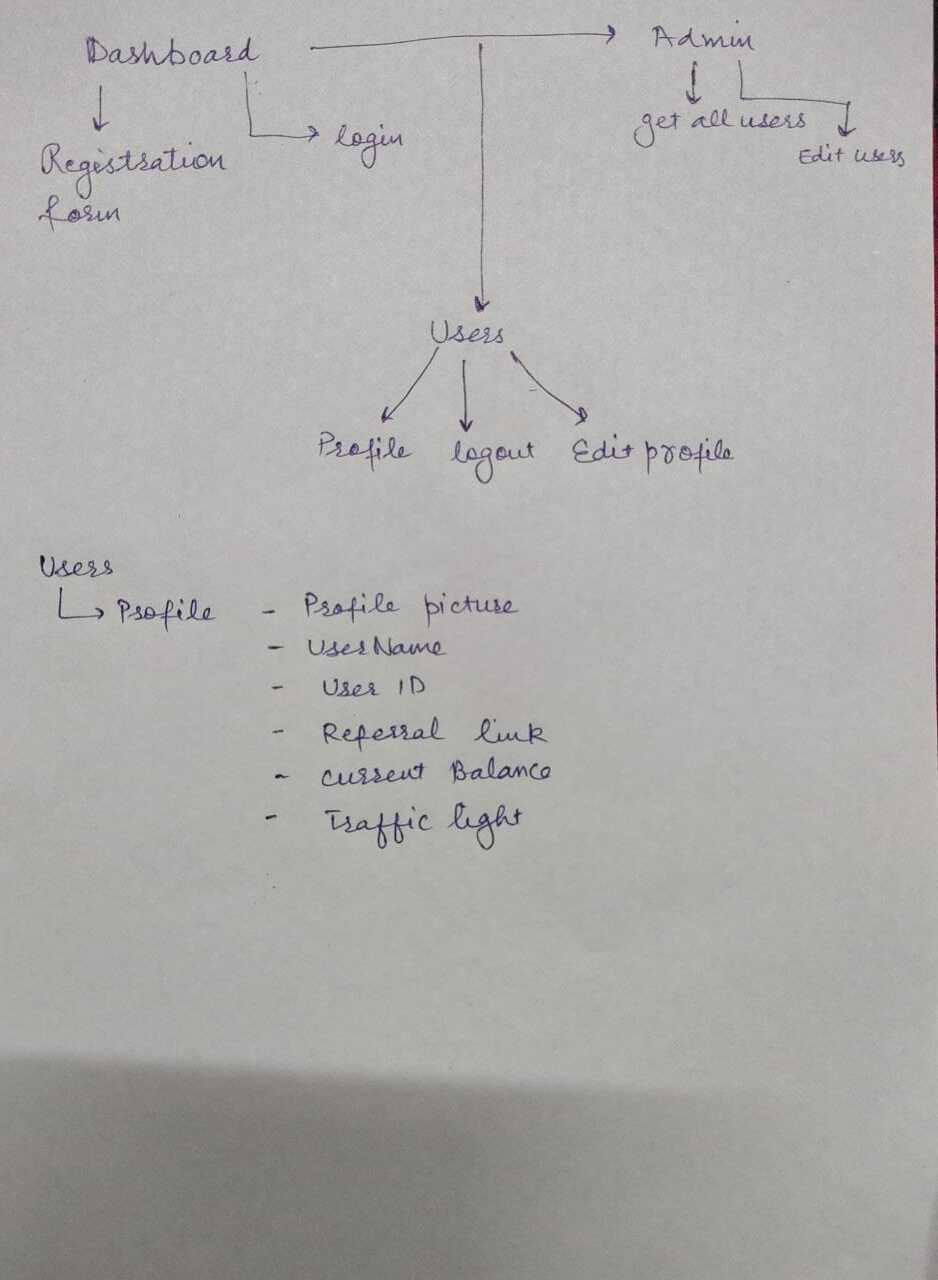 Dashboard
Admin
Registration
form
login
get all users
Edit users
Users
Profile logout Edit profile
Users
Profile - Profile picture
- UserName
- User ID
- Referral link
- Current Balance
- Traffic light